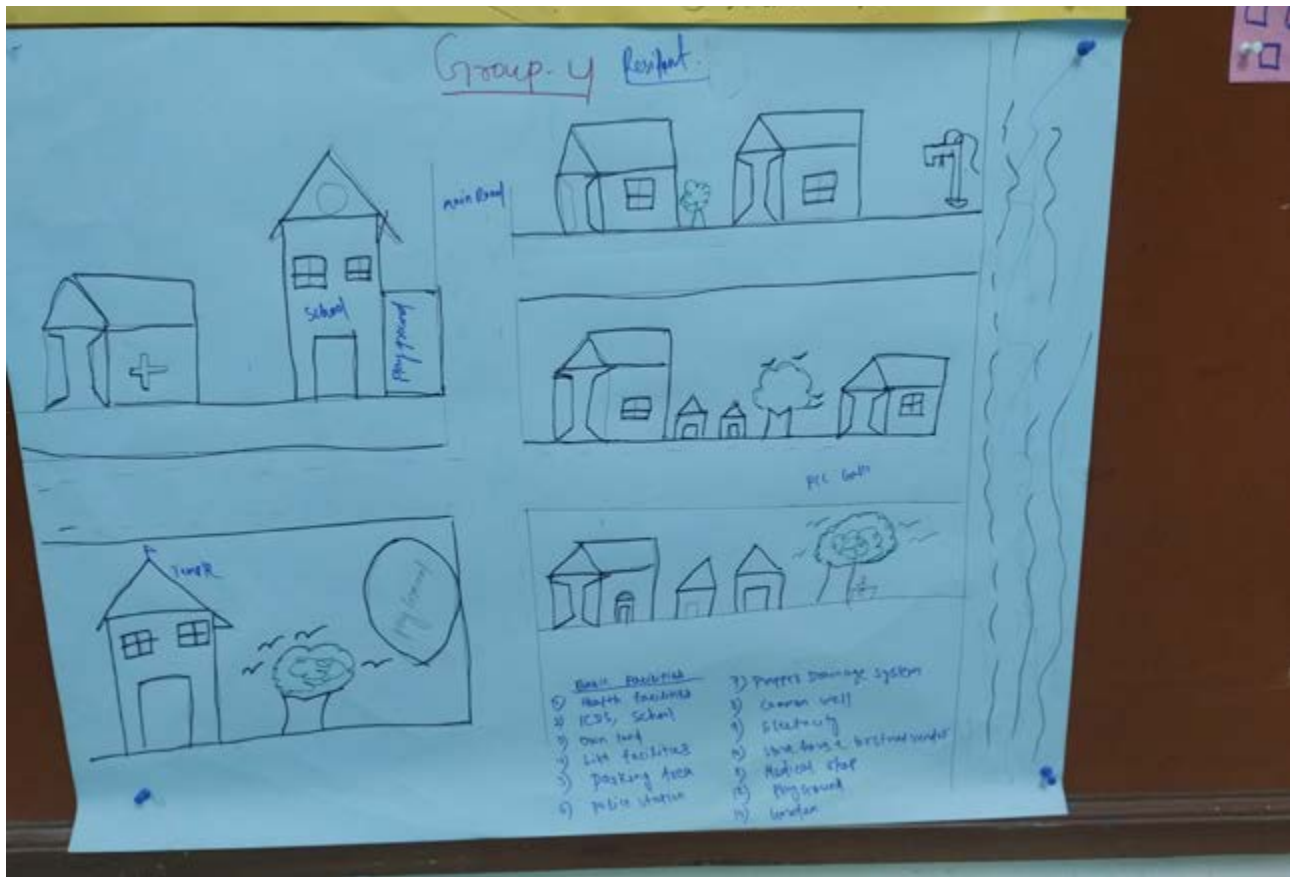 Group. 4 Resident.
main Road
School
Play ground
PCC Galli
Temple
Play Ground
Basic Facilities
1) Health facilities
2) ICDS, School
3) Own land
4) facilities
5) Parking Area
6) Police station
7) Proper Drainage System
8) Common well
9) Electricity
Medical Stop
Playground
Garden